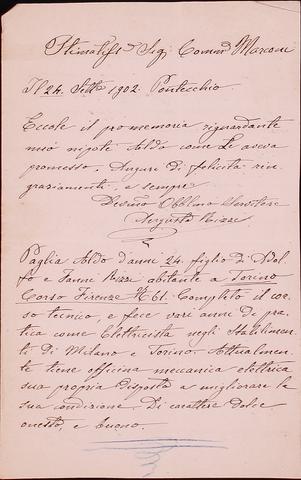 Stimatiss Sig. Comm Marconi
Il 24. Sett 1902. Pontecchio.
Eccole il promemoria riguardante
mio nipote Aldo come Le aveva
promesso. Auguri di felicità rin
graziamenti, e sempre
Devmo Obblmo Servitore
Augusto Rizzi
Paglia Aldo d'anni 24. figlio di Adol
fo e Fanni Rizzi abitante a Torino
Corso Firenze N. 61. Completò il cor
so tecnico e fece vari anni di pra
tica come Elettricista negli Stabilimen
ti di Milano e Torino. Attualmen
te tiene officina meccanica elettrica
sua propria disposto a migliorare la
sua condizione. Di carattere dolce
onesto, e buono.